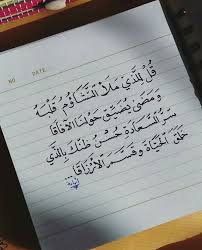 NO DATE
قُل للَّذي مَلأَ التَّشاؤمُ قَلبَهُ
وَمَضى يُضَيِّقُ حَولَنا الآفاقَا
سِرُّ السَّعادَةِ حُسْنُ ظَنِّكَ بِالَّذي
خَلَقَ الحَيَاةَ وَقَسَّمَ الأَرْزَاقَا